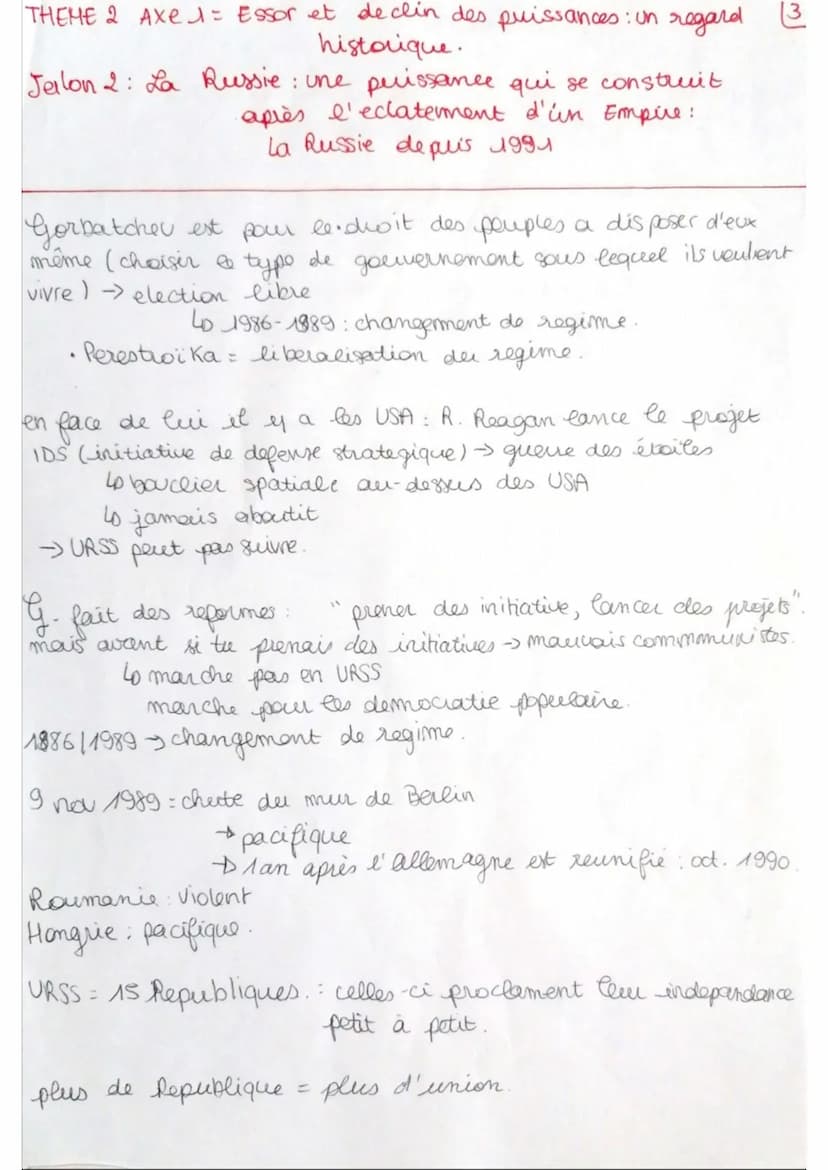 THEME 2 AXE 1 = Essor et declin des puissances : un regard 3
historique.
Jalon 2 : La Russie : une puissance qui se construit
après l'eclatement d'un Empire :
la Russie depuis 1991
Gorbatchev est pour le droit des peuples a disposer d'eux
même (choisir le type de gouvernement sous lequel ils veulent
vivre) → election libre
↳ 1986-1989 : changement de regime.
• Perestroïka = liberalisation du regime.
en face de lui il y a les USA : R. Reagan lance le projet
IDS (initiative de defense strategique) → guerre des étoiles
↳ bouclier spatiale au-dessus des USA
↳ jamais aboutit
→ URSS peut pas suivre.
G. fait des reformes : " prener des initiative, lancer des projets".
mais avant si tu prenais des initiatives → mauvais commmunistes.
↳ marche pas en URSS
marche pour les democratie populaire.
1886/1989 → changement de regime.
9 nov 1989 = chute du mur de Berlin
→ pacifique
→ 1an après l'allemagne est reunifié : oct. 1990.
Roumanie : violent
Hongrie : pacifique.
URSS = 15 Republiques. : celles-ci proclament leur independance
petit à petit.
plus de Republique = plus d'union.